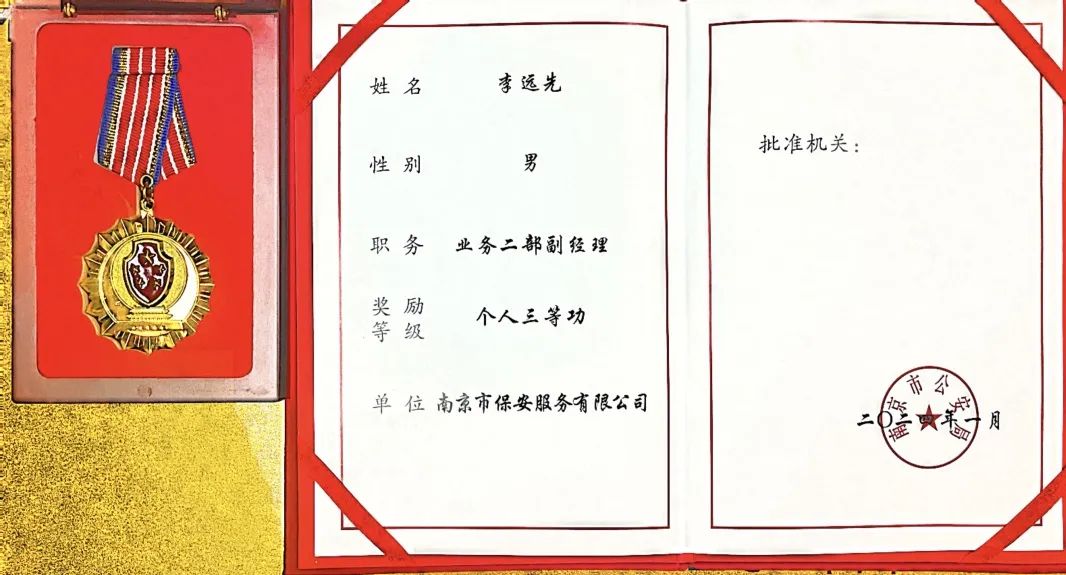 姓名 李远先
性别 男
职务 业务二部副经理
奖励等级 个人三等功
单位 南京市保安服务有限公司
批准机关：
南京市公安局
二〇二四年一月